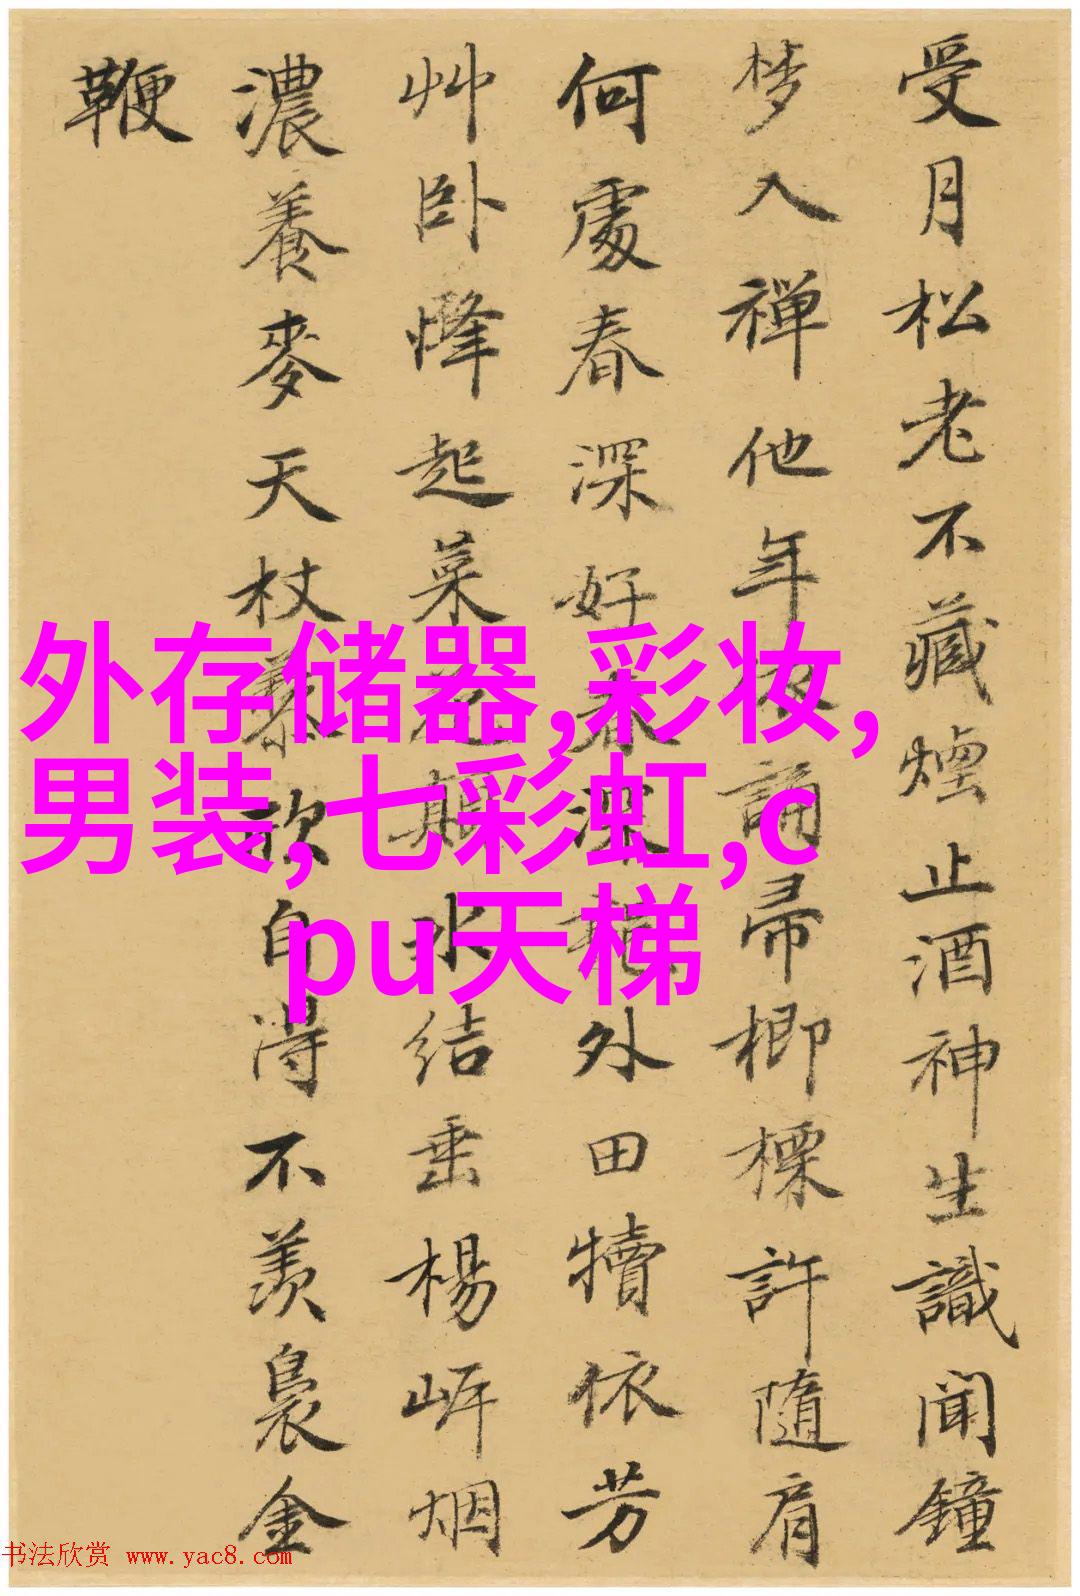 受月松老不藏煙止酒神生識聞鐘
梦入禅他年夜誦帚楖標許隨肩
何處春深好春深外田犢依芳
艸卧烽起菜花水结垂楊岸烟
濃養麥天杖藜欣自得不羡裊金
鞭
外存储器,彩妆,
男装,七彩虹,c
pu天梯
书法欣赏 www.yac8.com